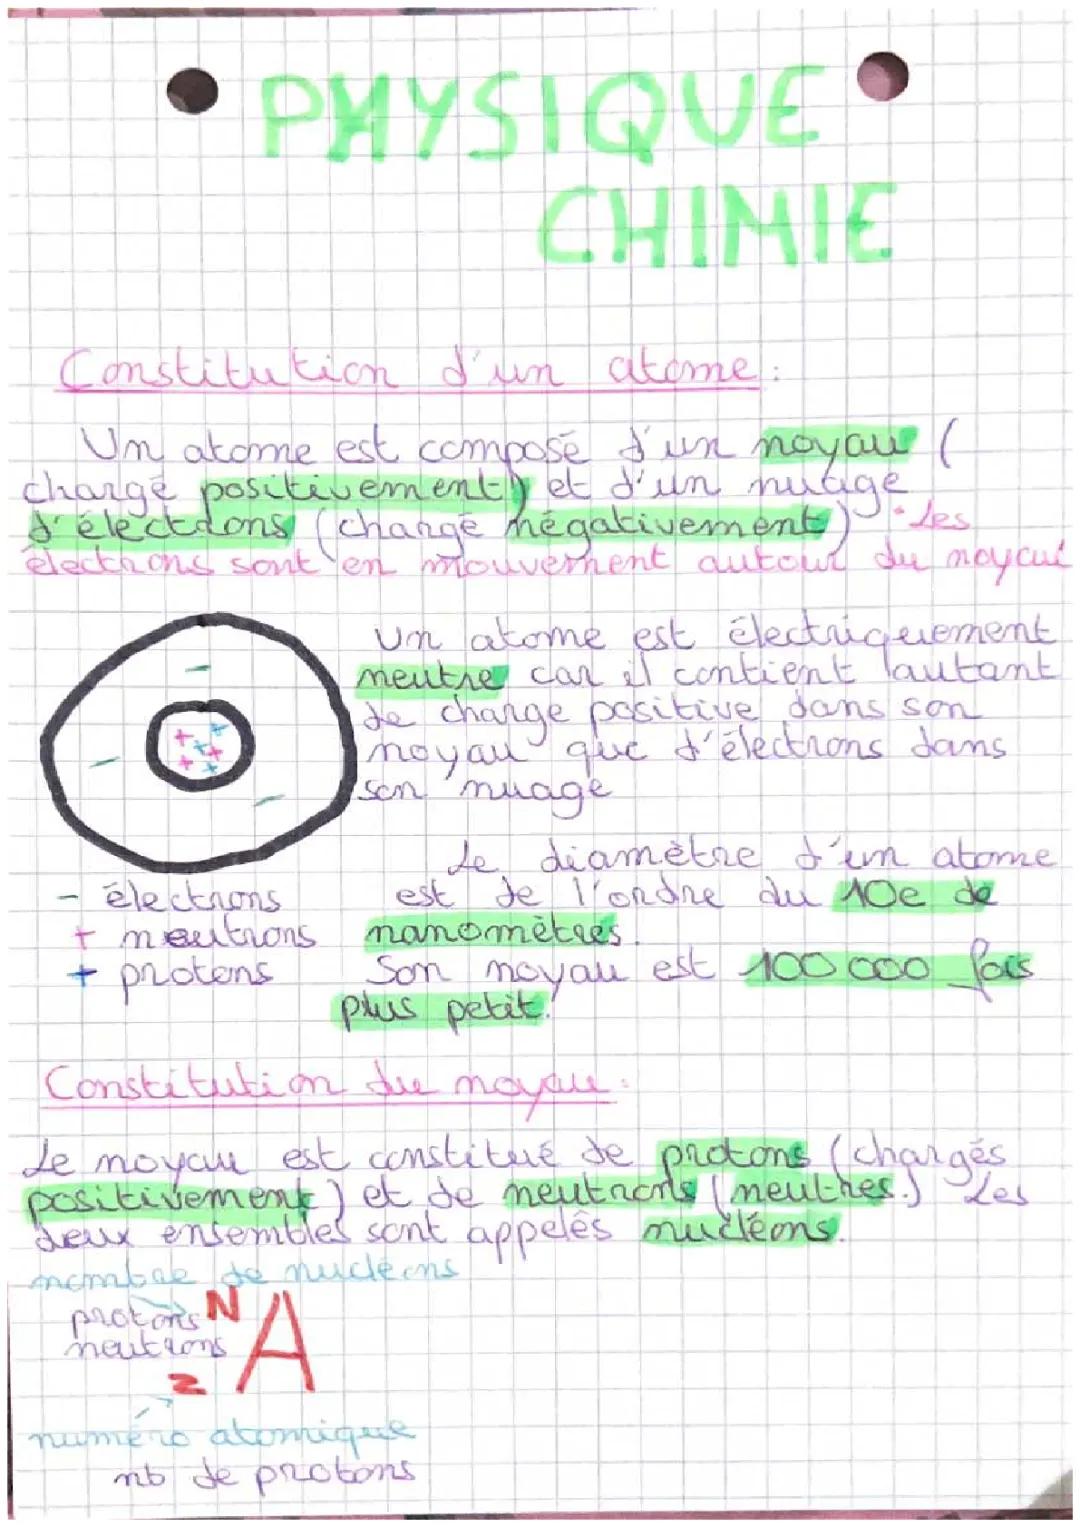 PHYSIQUE
CHIMIE
Constitution d'un atome :
Un atome est composé d'un noyau (
chargé positivement) et d'un nuage
d'électrons (chargé négativement). Les
électrons sont en mouvement autour du noyau
Un atome est électriquement
neutre car il contient autant
de charge positive dans son
noyau que d'électrons dans
son nuage
Le diamètre d'un atome
est de l'ordre du 10e de
nanomètres.
Son noyau est 100 000 fois
plus petit.
- électrons
+ neutrons
+ protons
Constitution du noyau :
Le noyau est constitué de protons (chargés
positivement) et de neutrons (neutres.) Les
deux ensembles sont appelés nucléons.
nombre de nucléons
protons
neutrons
N
A
Z
numéro atomique
nb de protons